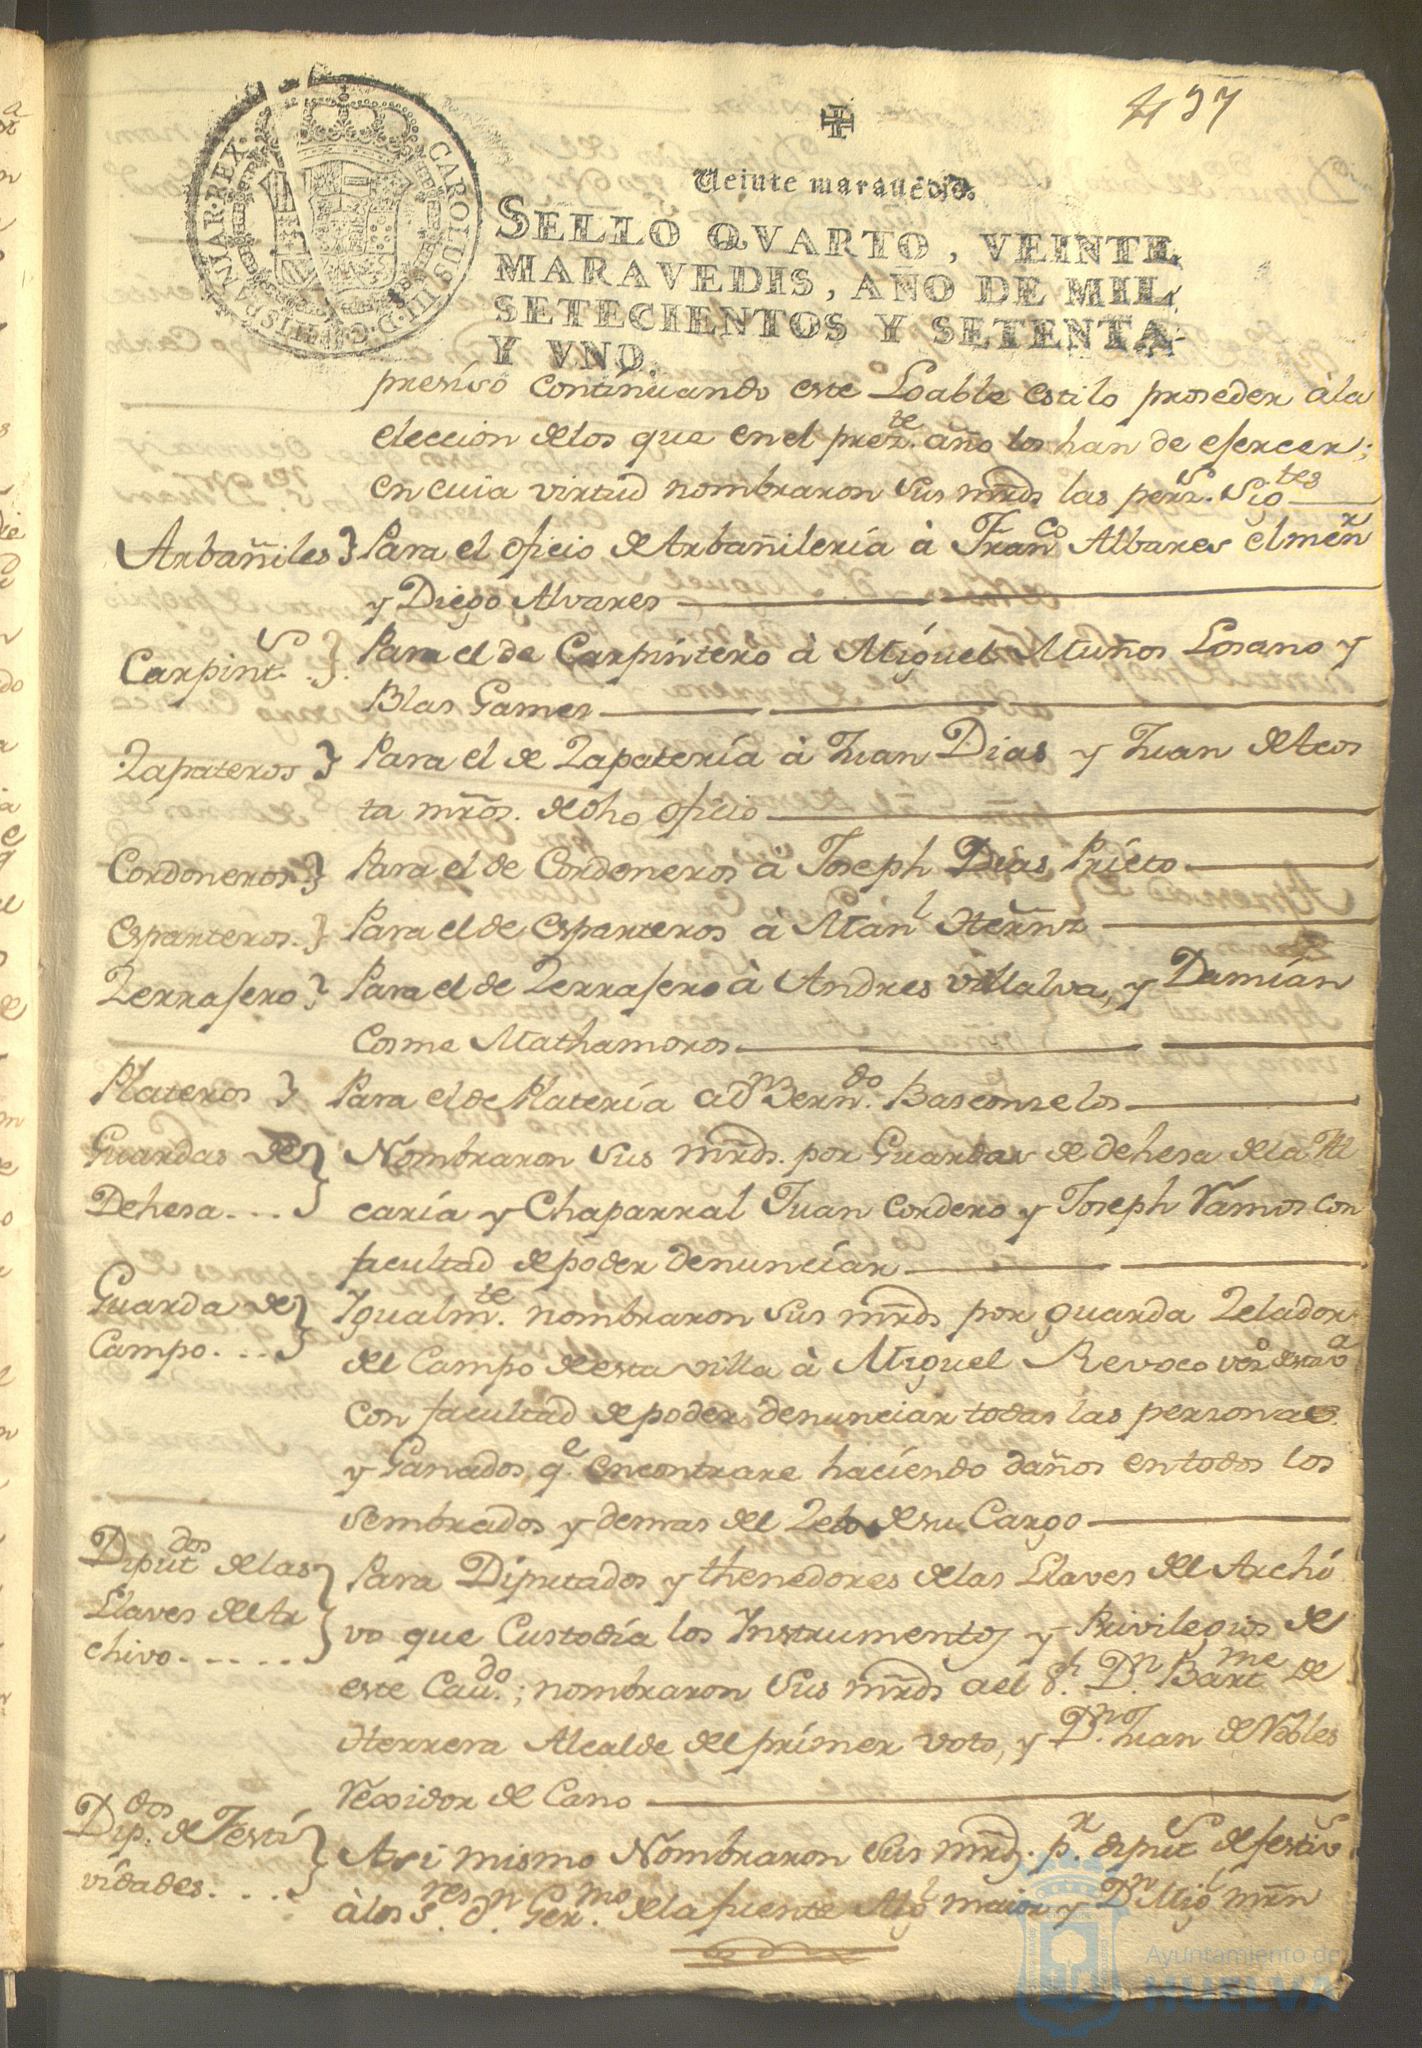 437
CAROLUS·III·D·G·HISPANIAR·REX·
Veinte maravedis.
SELLO QVARTO, VEINTE
MARAVEDIS, AÑO DE MIL
SETECIENTOS Y SETENTA
Y VNO.
presivo continuando este Loable estilo proseder à la
eleccion delos que en el prezte. año los han de esercer;
en cuia virtud nombraron Sus mrds las persS. Sigtes
Arbañiles } Para el oficio de Arbañilería à Franco Albares el menr
y Diego Alvares
CarpintS. } Para el de Carpintero à Miguel Muños Losano y
Blas Gamez
Zapateros } Para el de Zapatería à Juan Dias y Juan de Acos
ta mrõs. de dho oficio
Cordoneros } Para el de Cordoneros à Joseph Dias Prieto
Esparteros. } Para el de esparteros à Manl Hernz
Zerrasero } Para el de Zerrasero à Andres villalva, y Damián
Cosme Mathamoros
Plateros } Para el de Platería a dn Berndo. Basconselos
Guardas de } Nombraron Sus mrds. por Guardas de dehesa de la Al
Dehesa... caría y Chaparral Juan Cordero y Joseph Ramos con
facultad de poder denunciar
Guarda de } Igualmte. nombraron Sus mrds por guarda Zelador
Campo.... del Campo de esta villa à Miguel Revoco vezo desta va
con facultad de poder denunciar todas las personas
y Ganados, qe. encontrare haciendo daños en todos los
sembrados y demas del Zelo de su Cargo
Diputdos de las } Para Diputados y thenedores de las Llaves del Archi
Llaves del Ar vo que Custodía los Instrumentos y Privilegios de
chivo...... este Caudo.; nombraron Sus mrds a el Sr. Dn. Bartme de
Herrera Alcalde del primer voto, y Dn. Juan de Robles
Rexidor de Cano
Dipdos. de Festi } Asi mismo Nombraron Sus mrds. pr. diputS de festivs
vidades.... à los Sres. dn Germo. de la fuente Algl maior y Dn Migl mrñ
Ayuntamiento de
HUELVA